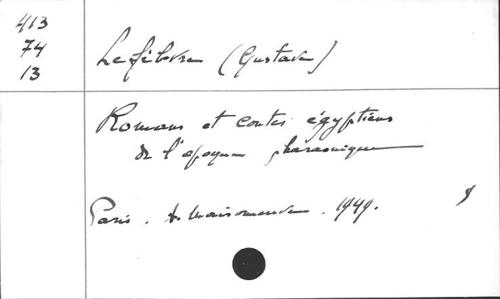 413
74
13
Lefèbvre (Gustave)
Romans et contes égyptiens
de l'époque pharaonique
Paris. A. Maisonneuve. 1949.